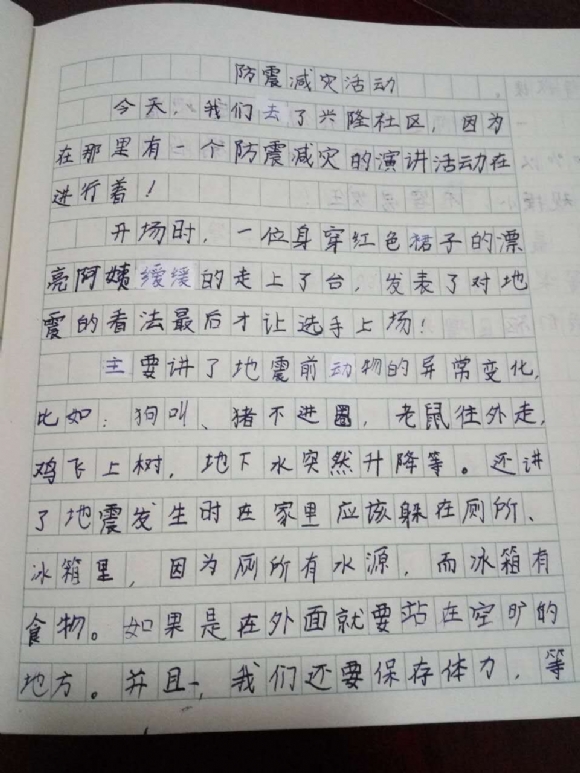 防震减灾活动
今天，我们去了兴隆社区，因为
在那里有一个防震减灾的演讲活动在
进行着！
开场时，一位身穿红色裙子的漂
亮阿姨缓缓的走上了台，发表了对地
震的看法最后才让选手上场！
主要讲了地震前动物的异常变化，
比如：狗叫、猪不进圈，老鼠往外走，
鸡飞上树，地下水突然升降等。还讲
了地震发生时在家里应该躲在厕所、
冰箱里，因为厕所有水源，而冰箱有
食物。如果是在外面就要站在空旷的
地方。并且，我们还要保存体力，等